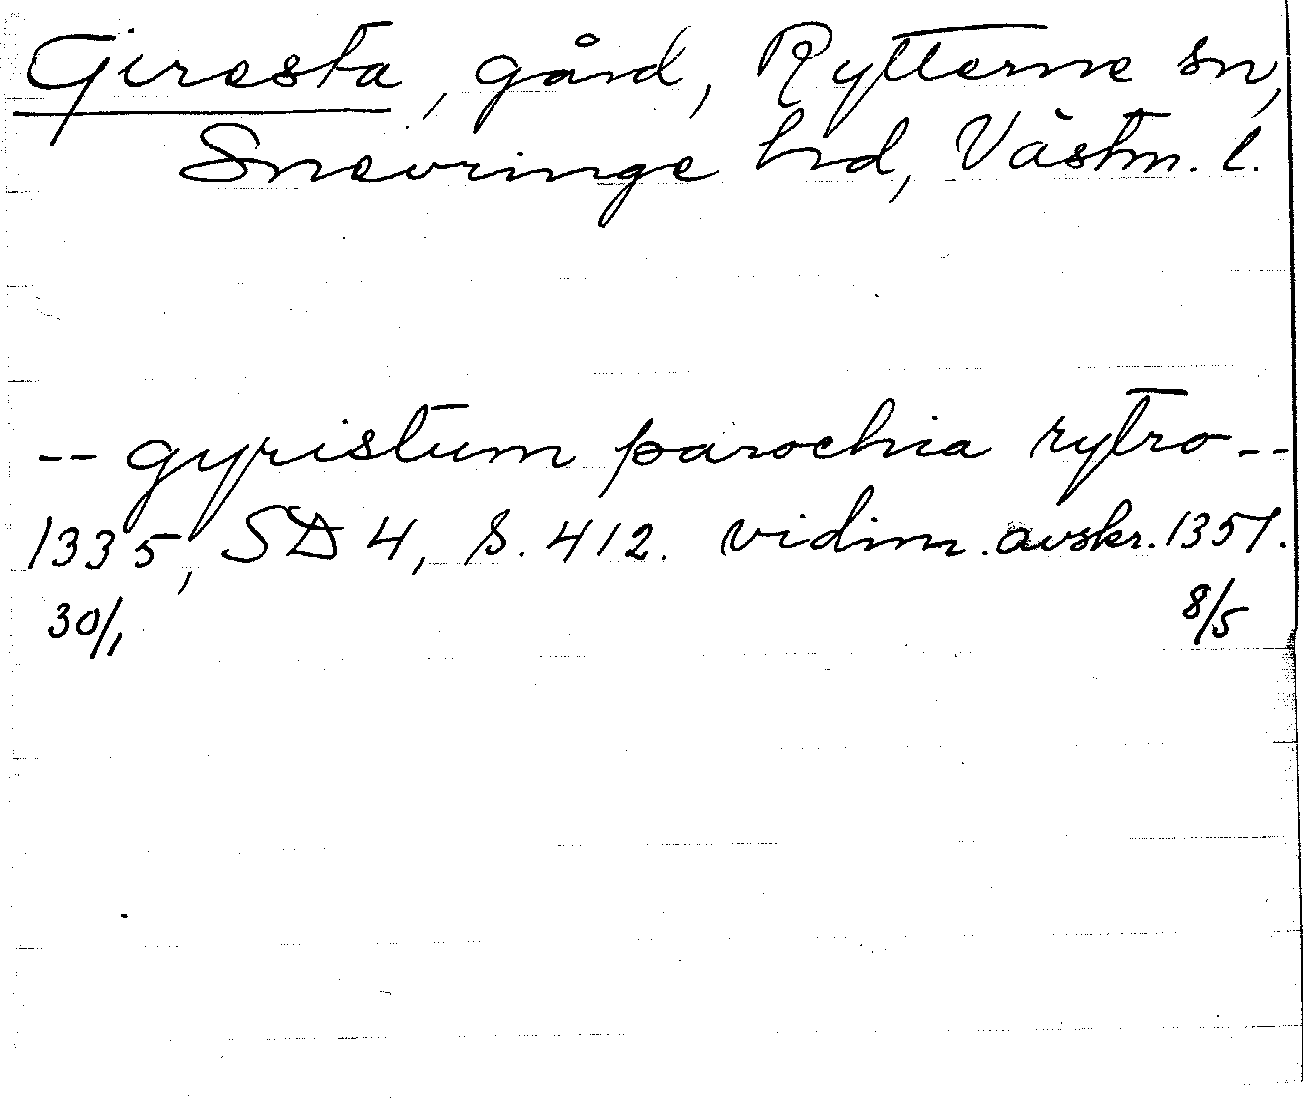 Giresta, gård, Rytterne sn,
Snevringe hd, Västm. l.
-- gyristum parochia rytro --
1335, SD 4, s. 412. vidim. avskr. 1351.
30/1 8/5